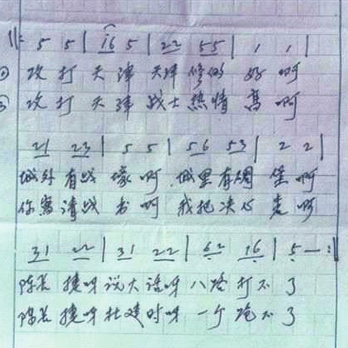 ‖: 5 5 | 16 5 | 22 55 | 1 1 |
② 攻 打 天 津 天津 修的 好 啊
③ 攻 打 天 津 战士 热情 高 啊
21 23 | 5 5 | 56 53 | 2 2 |
城外 有战 壕 啊 城里 有碉 堡 啊
你写 请战 书 啊 我把 决心 表 啊
31 22 | 31 22 | 62 16 | 5 — :‖
陈长 捷呀 说大 话呀 八路 打不 了
陈长 捷呀 杜建时呀 一个 跑不 了